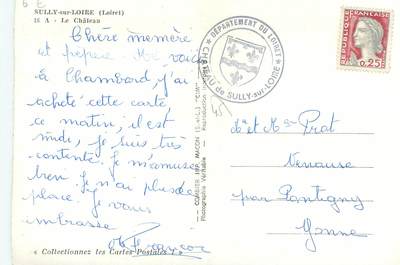 6 E
SULLY-sur-LOIRE (Loiret)
16 A - Le Château
Chère mémère
et pépère me voici
à Chambord, j'ai
acheté cette carte,
ce matin, il est
midi, je suis très
contente. Je m'amuse
bien. Je n'ai plus de
place. Je vous
embrasse.
« Collectionnez les Cartes Postales ! »
COMBIER IMP. MACON (S.-&-L.) "CIM"
Photographie Véritable - Reproduction
DÉPARTEMENT DU LOIRET
CHÂTEAU de SULLY-sur-LOIRE
45
REPUBLIQUE FRANCAISE
0,25
Prat
Venouse
par Pontigny
Yonne